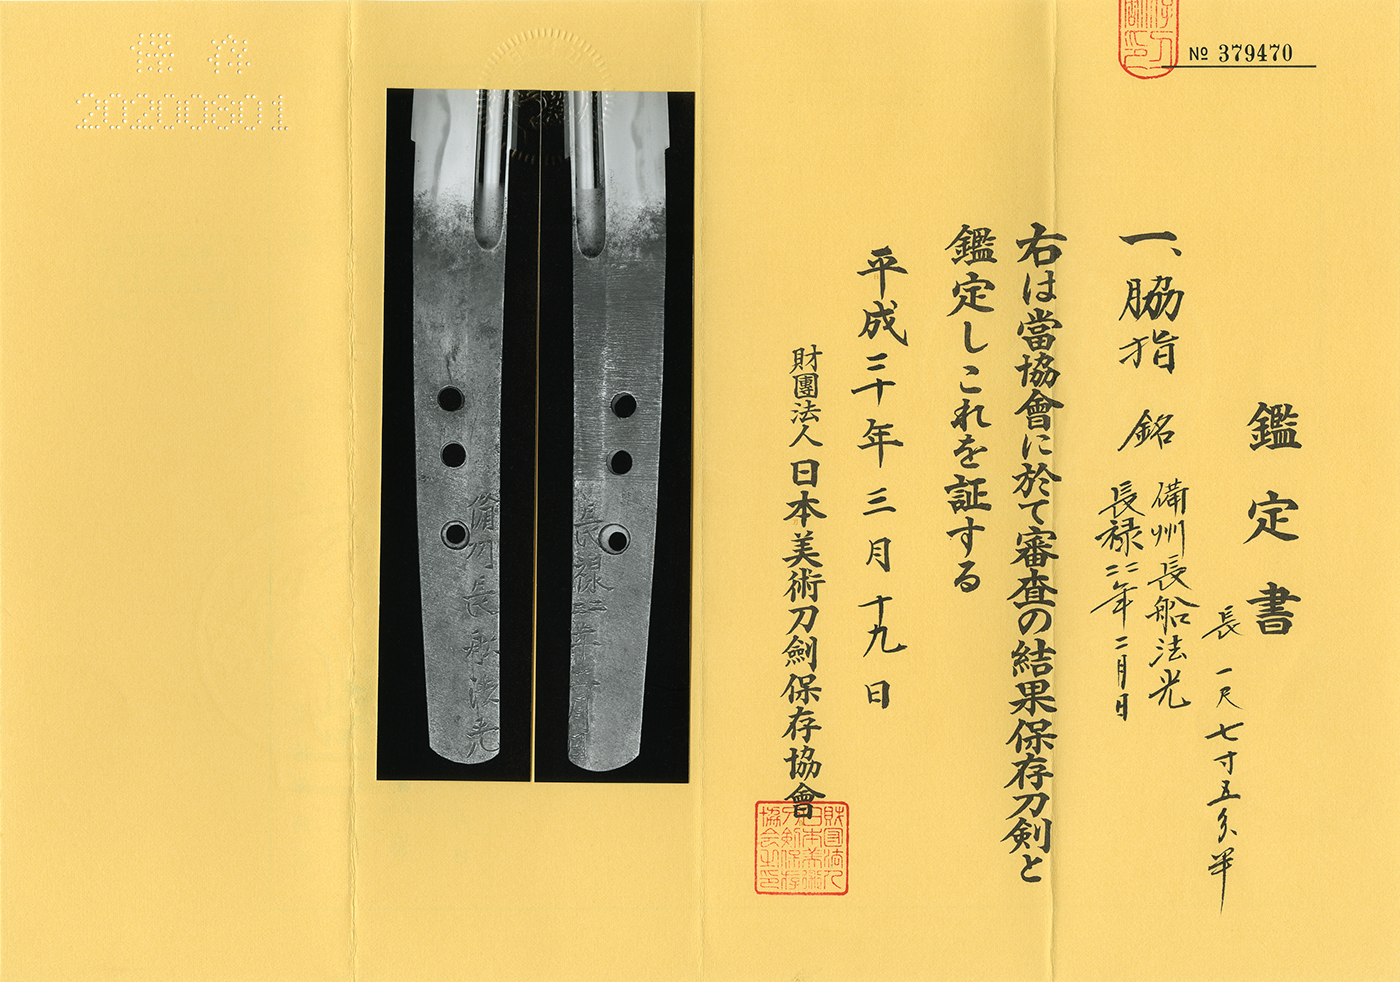 № 379470
鑑定書
長 一尺七寸五分半
一、脇指 銘 備州長船法光
長禄二二年二月日
右は當協會に於て審査の結果保存刀剣と
鑑定しこれを証する
平成二十年三月十九日
財團法人日本美術刀劍保存協會
財団法人日本美術刀剣保存協会之印
備州長船法光
保存
20200801